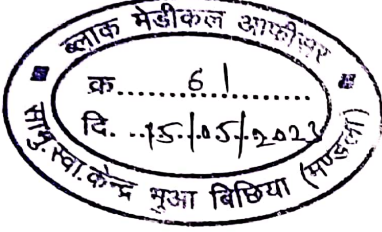 ब्लाक मेडीकल आफीसर
क्र......61..........
दि. ..15.|.05.|.2023
सामु.स्वा.केन्द्र भुआ बिछिया (मण्डला)